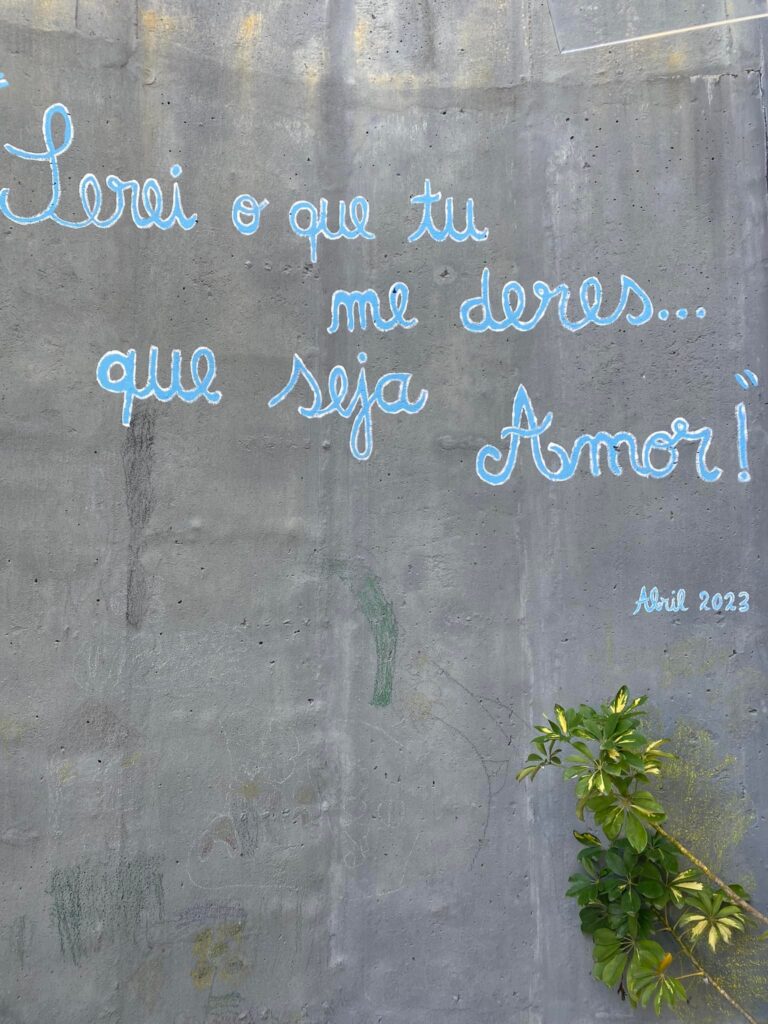 "Serei o que tu
me deres...
que seja Amor!"
Abril 2023